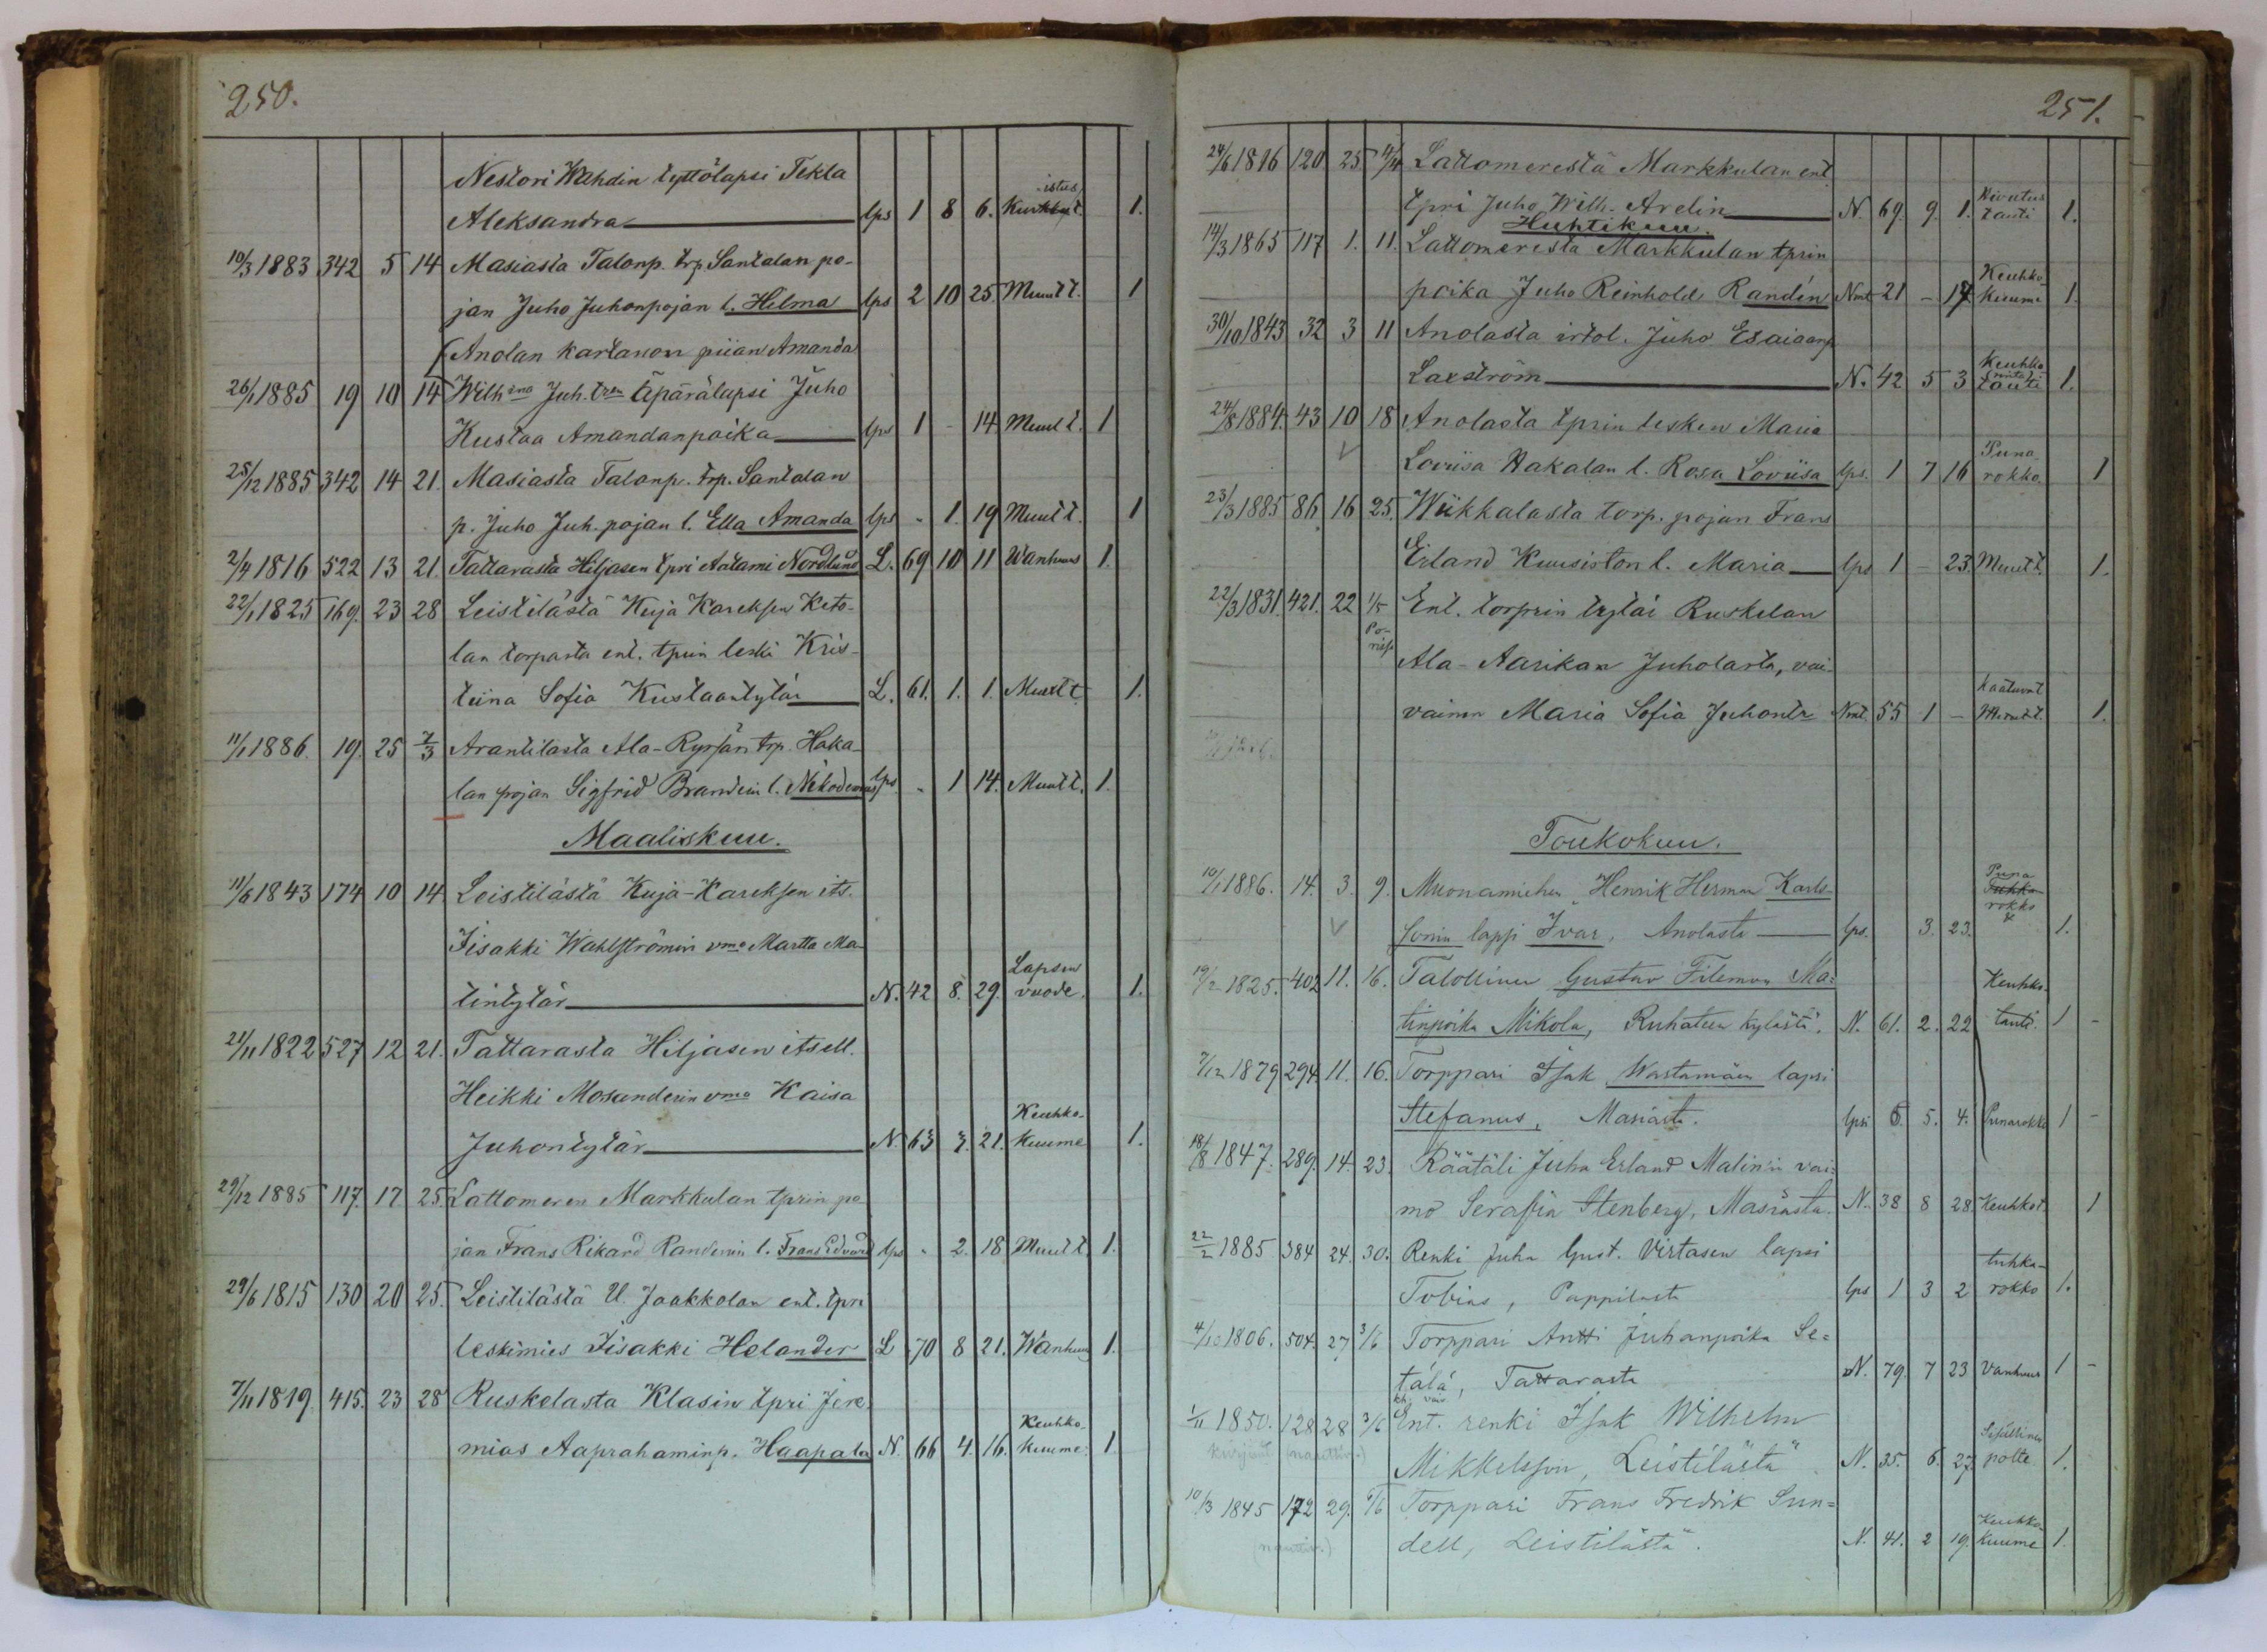 250.
Nestori Wahdin tyttölapsi Tekla
istus
Aleksandra lps 1 8 6. 1.
10/3 1883 342 5 14 Masiasta Talonp. trp. Santalan po-
jan Juho Juhonpojan l. Hilma lps 2 10 25. Muut t. 1
(Anolan kartanon piian Amanda
26/1 1885 19 10 14 Wilh:ina Juh. tren Äpärälapsi Juho
Kustaa Amandanpoika lps 1 - 14. Muut t. 1
25/12 1885 342 14 21. Masiasta Talonp. trp. Santalan
p. Juho Juh. pojan l. Ella Amanda lps " 1. 19 Muut t. 1
2/4 1816 522 13 21. Tattarasta Hiljasen tpri Aatami Nordlund L. 69 10 11 Wanhuus 1.
22/1 1825 169. 23 28 Leistilästä Kuja Kareksen Keto-
lan torpasta ent. tprin leski Kris-
tiina Sofia Kustaantytär L. 61. 1. 1. Muut t. 1.
11/1 1886. 19. 25 7/3 Arantilasta Ala-Ryssän trp. Haka-
lan pojan Sigfrid Brandein l. Nikodemus lps. " 1 14. Muut t. 1.
Maaliskuu.
11/6 1843 174 10 14. Leistilästä Kuja-Kareksen its.
Iisakki Wahlströmin vmo Martta Ma-
Lapsen
tintytär N. 42 8. 29. vuode. 1.
21/11 1822 527 12 21. Tattarasta Hiljasen itsell.
Heikki Mosanderin vmo Kaisa
Keuhko-
Juhontytär N. 63 3. 21. Kuume 1.
29/12 1885 117. 17 25. Lattomeren Markkulan tprin po
jan Frans Rikard Randenin l. Frans Edvard lps " 2. 18 Muut t. 1.
29/6 1815 130 20 25. Leistilästä U. Jaakkolan ent. tpri
leskimies Iisakki Helander L 70 8 21. Wanhuus 1.
7/11 1819. 415. 23 28 Ruskelasta Klasin tpri Jere-
Keuhko-
mias Aaprahaminp. Haapala N. 66 4. 16. kuume. 1.
251.
24/6 1816 120 25 11/4 Lattomerestä Markkulan ent.
Kivutus
tpri Juho Wilh. Arelin N. 69. 9. 1. tauti 1.
Huhtikuu.
14/3 1865 117 1. 11. Lattomeresta Markkulan tprin
Keuhko-
poika Juho Reinhold Randén Nmt 21 - 17. kuume 1.
30/10 1843 32 3 11 Anolasta irtol. Juho Esaiaanp
Keuhko
Laxström N. 42 5 3 tauti 1.
24/8 1884. 43 10 18 Anolasta tprin lesken Maria
Puna
Loviisa Hakalan l. Rosa Loviisa lps. 1 7 16 rokko. 1
23/3 1885 86 16 25. Wiikkalasta torp. pojan Frans
Erland Kuusiston l. Maria lps 1 - 23. Muut t. 1.
22/3 1831. 421. 22 1/5 Ent. torprin tytär Ruskelan
Po-
Ala-Aarikan Juholasta, vai-
Kaatuvat
vainen Maria Sofia Juhontr Nmt. 55 1 - Muut t. 1.
Toukokuu.
10/1 1886. 14. 3. 9. Muonamiehen Henrik Herman Karls-
Puna
Tuhka-
rokko
sonin lapsi Ivar, Anolasta lps. 3. 23. 1.
19/2 1825. 402 11. 16. Talollinen Gustav Filemon Ma=
Keuhko-
tinpoika Mikola, Ruhatun kylästä. N. 61. 2. 22 tauti. 1 -
7/12 1879 294. 11. 16. Torppari Isak Wastamäen lapsi
Stefanus, Masiasta. lpsi 6. 5. 4. Punarokko 1 -
18/8 1847. 289. 14. 23. Räätäli Juha Erland Malinin vai=
mo Serafia Stenberg, Masiasta. N. 38 8 28. Keuhkot. 1
22/2 1885 384 24. 30. Renki Juha Gust. Virtasen lapsi
tuhka-
Tobias, Pappilasta lps 1 3 2 rokko 1.
4/10 1806. 504. 27 3/6 Torppari Antti Juhanpoika Se=
tälä, Tattarasta N. 79. 7 23 Vanhuus 1 -
1/11 1850. 128 28 3/6 Ent. renki Isak Wilhelm
Sisällinen
Mikkelsson, Leistilästä. N. 35. 6. 27. polte. 1.
10/3 1845 172 29. 6/6 Torppari Frans Fredrik Sun=
Keuhko-
dell, Leistilästä. N. 41. 2 19. kuume 1.